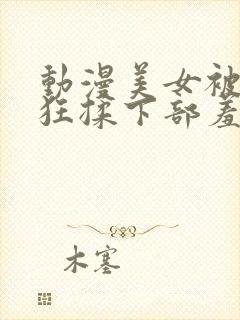 動漫美女被
狂揉下部羞
木塞